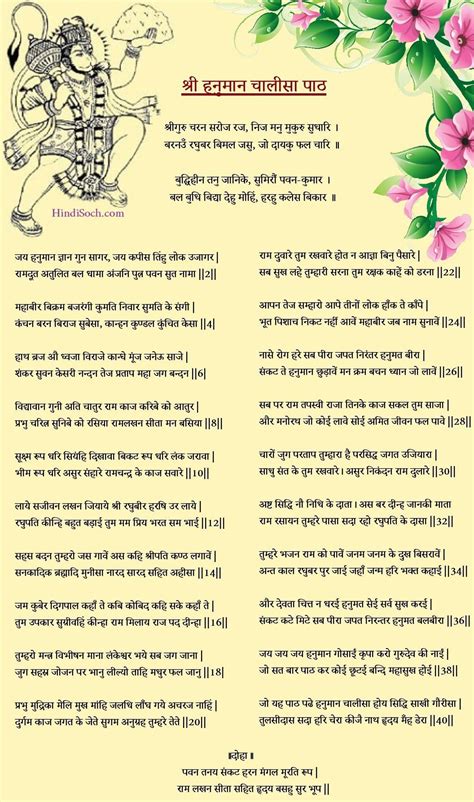 श्री हनुमान चालीसा पाठ
श्रीगुरु चरन सरोज रज, निज मनु मुकुरु सुधारि ।
बरनउँ रघुबर बिमल जसु, जो दायकु फल चारि ॥
बुद्धिहीन तनु जानिके, सुमिरौं पवन-कुमार ।
बल बुधि बिद्या देहु मोहिं, हरहु कलेस बिकार ॥
HindiSoch.com
जय हनुमान ज्ञान गुन सागर, जय कपीस तिंहु लोक उजागर |
रामदूत अतुलित बल धामा अंजनि पुत्र पवन सुत नामा ||2||
महाबीर बिक्रम बजरंगी कुमति निवार सुमति के संगी |
कंचन बरन बिराज सुबेसा, कान्हन कुण्डल कुंचित केसा ||4||
हाथ ब्रज औ ध्वजा विराजे कान्धे मूंज जनेऊ साजे |
शंकर सुवन केसरी नन्दन तेज प्रताप महा जग बन्दन ||6||
विद्यावान गुनी अति चातुर राम काज करिबे को आतुर |
प्रभु चरित्र सुनिबे को रसिया रामलखन सीता मन बसिया ||8||
सूक्ष्म रूप धरि सियंहि दिखावा बिकट रूप धरि लंक जरावा |
भीम रूप धरि असुर संहारे रामचन्द्र के काज सवारे ||10||
लाये सजीवन लखन जियाये श्री रघुबीर हरषि उर लाये |
रघुपति कीन्हि बहुत बड़ाई तुम मम प्रिय भरत सम भाई ||12||
सहस बदन तुम्हरो जस गावें अस कहि श्रीपति कण्ठ लगावें |
सनकादिक ब्रह्मादि मुनीसा नारद सारद सहित अहीसा ||14||
जम कुबेर दिगपाल कहाँ ते कबि कोबिद कहि सके कहाँ ते |
तुम उपकार सुग्रीवहिं कीन्हा राम मिलाय राज पद दीन्हा ||16||
तुम्हरो मन्त्र विभीषन माना लंकेश्वर भये सब जग जाना |
जुग सहस्र जोजन पर भानु लील्यो ताहि मधुर फल जानु ||18|
प्रभु मुद्रिका मेलि मुख मांहि जलधि लाँघ गये अचरज नाहिं |
दुर्गम काज जगत के जेते सुगम अनुग्रह तुम्हरे तेते ||20||
राम दुवारे तुम रखवारे होत न आज्ञा बिनु पैसारे |
सब सुख लहे तुम्हारी सरना तुम रक्षक काहें को डरना ||22||
आपन तेज सम्हारो आपे तीनों लोक हाँक ते काँपे |
भूत पिशाच निकट नहीं आवें महाबीर जब नाम सुनावें ||24||
नासे रोग हरे सब पीरा जपत निरंतर हनुमत बीरा |
संकट ते हनुमान छुड़ावें मन क्रम बचन ध्यान जो लावें ||26||
सब पर राम तपस्वी राजा तिनके काज सकल तुम साजा |
और मनोरथ जो कोई लावे सोई अमित जीवन फल पावे ||28||
चारों जुग परताप तुम्हारा है परसिद्ध जगत उजियारा |
साधु संत के तुम रखवारे। असुर निकंदन राम दुलारे ||30||
अष्ट सिद्धि नौ निधि के दाता। अस बर दीन्ह जानकी माता
राम रसायन तुम्हरे पासा सदा रहो रघुपति के दासा ||32||
तुम्हरे भजन राम को पावें जनम जनम के दुख बिसरावें |
अन्त काल रघुबर पुर जाई जहाँ जन्म हरि भक्त कहाई ||34||
और देवता चित्त न धरई हनुमत सेई सर्व सुख करई |
संकट कटे मिटे सब पीरा जपत निरन्तर हनुमत बलबीरा ||36||
जय जय जय हनुमान गोसाईं कृपा करो गुरुदेव की नाईं |
जो सत बार पाठ कर कोई छूटई बन्दि महासुख होई ||38||
जो यह पाठ पढे हनुमान चालीसा होय सिद्धि साखी गौरीसा |
तुलसीदास सदा हरि चेरा कीजै नाथ हृदय मँह डेरा ||40||
॥दोहा॥
पवन तनय संकट हरन मंगल मूरति रूप |
राम लखन सीता सहित हृदय बसहु सुर भूप ||